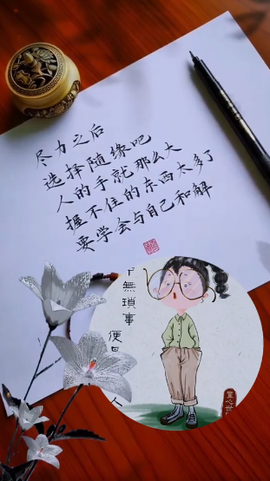 尽力之后
选择随缘吧
人的手就那么大
握不住的东西太多了
要学会与自己和解
無瑣事
便是